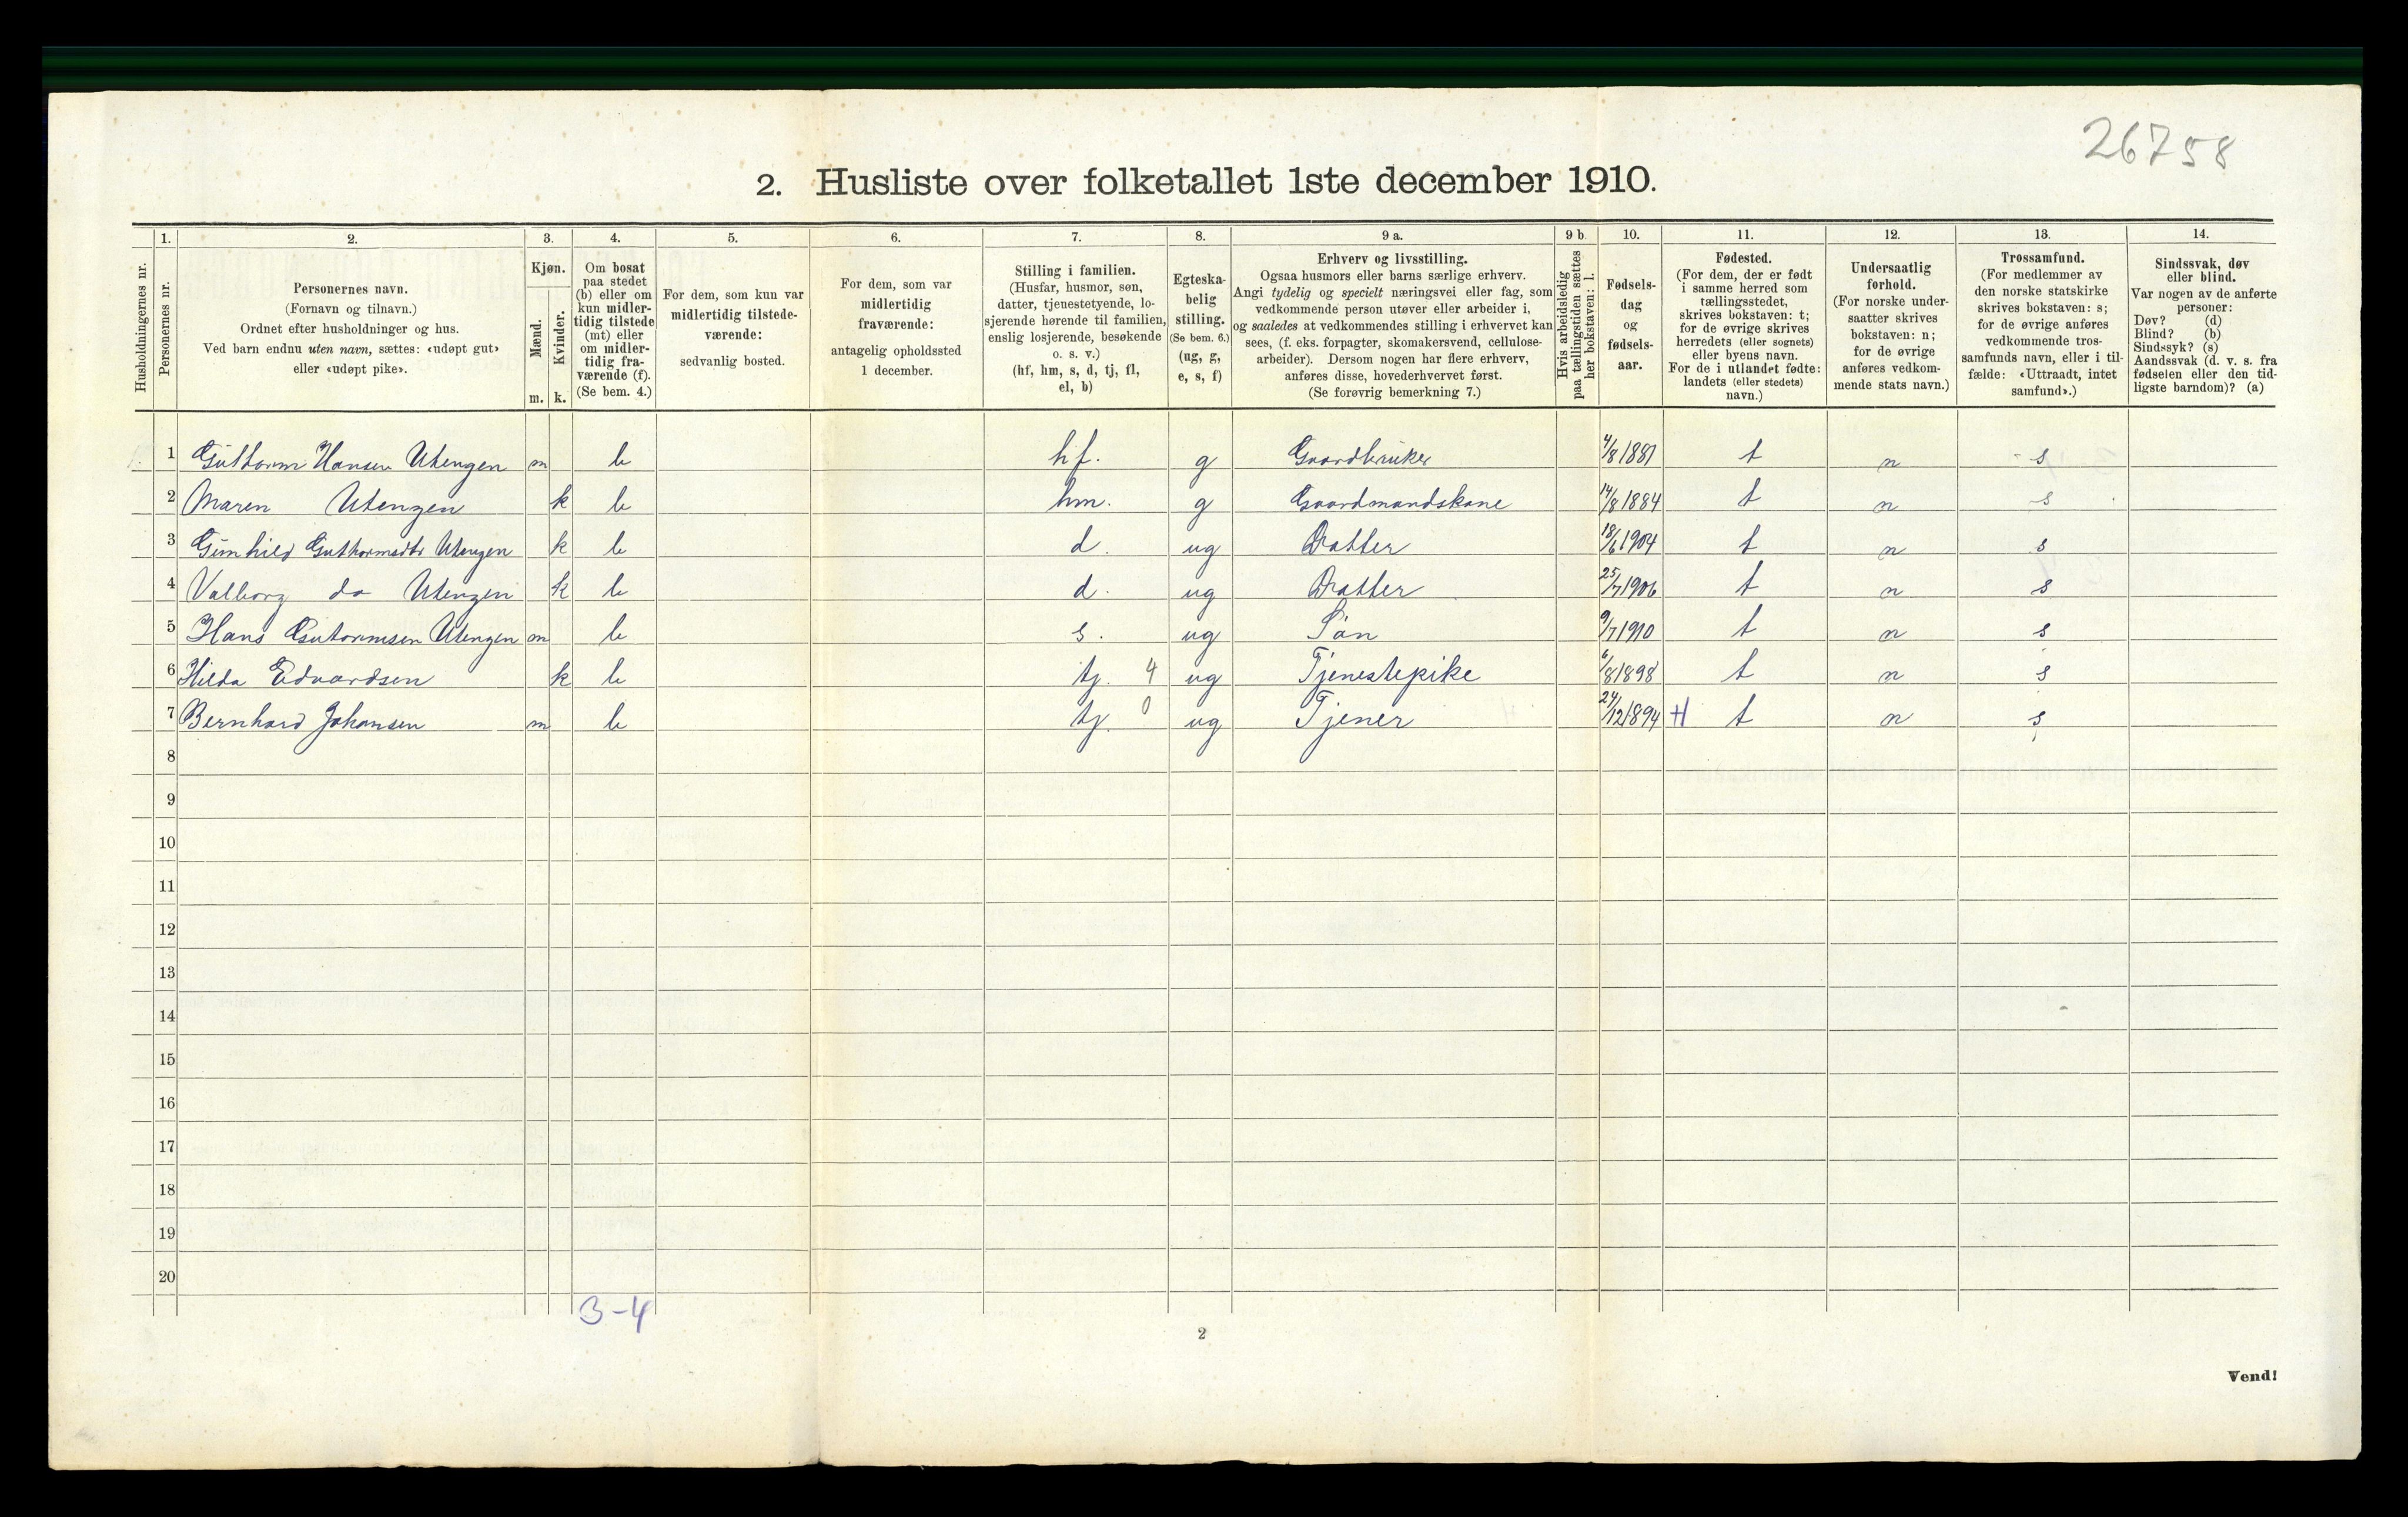 26758
2. Husliste over folketallet 1ste december 1910.
Husholdningernes nr.
1.
Personernes nr.
2.
Personernes navn.
(Fornavn og tilnavn.)
Ordnet efter husholdninger og hus.
Ved barn endnu uten navn, sættes: «udøpt gut»
eller «udøpt pike».
3.
Kjøn.
Mænd.
m.
Kvinder.
k.
4.
Om bosat
paa stedet
(b) eller om
kun midler-
tidig tilstede
(mt) eller
om midler-
tidig fra-
værende (f).
(Se bem. 4.)
5.
For dem, som kun var
midlertidig tilstede-
værende:
sedvanlig bosted.
6.
For dem, som var
midlertidig
fraværende:
antagelig opholdssted
1 december.
7.
Stilling i familien.
(Husfar, husmor, søn,
datter, tjenestetyende, lo-
sjerende hørende til familien,
enslig losjerende, besøkende
o. s. v.)
(hf, hm, s, d, tj, fl,
el, b)
8.
Egteska-
belig
stilling.
(Se bem. 6.)
(ug, g,
e, s, f)
9 a.
Erhverv og livsstilling.
Ogsaa husmors eller barns særlige erhverv.
Angi tydelig og specielt næringsvei eller fag, som
vedkommende person utøver eller arbeider i,
og saaledes at vedkommendes stilling i erhvervet kan
sees, (f. eks. forpagter, skomakersvend, cellulose-
arbeider). Dersom nogen har flere erhverv,
anføres disse, hovederhvervet først.
(Se forøvrig bemerkning 7.)
9 b.
Hvis arbeidsledig
paa tællingstiden sættes
her bokstaven: l.
10.
Fødsels-
dag
og
fødsels-
aar.
11.
Fødested.
(For dem, der er født
i samme herred som
tællingsstedet,
skrives bokstaven: t;
for de øvrige skrives
herredets (eller sognets)
eller byens navn.
For de i utlandet fødte:
landets (eller stedets)
navn.)
12.
Undersaatlig
forhold.
(For norske under-
saatter skrives
bokstaven: n;
for de øvrige
anføres vedkom-
mende stats navn.)
13.
Trossamfund.
(For medlemmer av
den norske statskirke
skrives bokstaven: s;
for de øvrige anføres
vedkommende tros-
samfunds navn, eller i til-
fælde: «Uttraadt, intet
samfund».)
14.
Sindssvak, døv
eller blind.
Var nogen av de anførte
personer:
Døv? (d)
Blind? (b)
Sindssyk? (s)
Aandssvak (d. v. s. fra
fødselen eller den tid-
ligste barndom)? (a)
1 Guthorm Hansen Utengen m b hf. g Gaardbruker 4/8 1881 t n s
2 Maren Utengen k b hm. g Gaardmandskone 14/8 1884 t n s
3 Gunhild Guthormsdtr Utengen k b d. ug Datter 18/6 1904 t n s
4 Valborg do Utengen k b d. ug Datter 25/7 1906 t n s
5 Hans Gutormsen Utengen m b s. ug Søn 9/7 1910 t n s
6 Hilda Edvardsen k b tj. 4 ug Tjenestepike 6/8 1898 t n s
7 Bernhard Johansen m b tj. 0 ug Tjener 24/12 1894 H t n s
8
9
10
11
12
13
14
15
16
17
18
19
20
3-4
2
Vend!